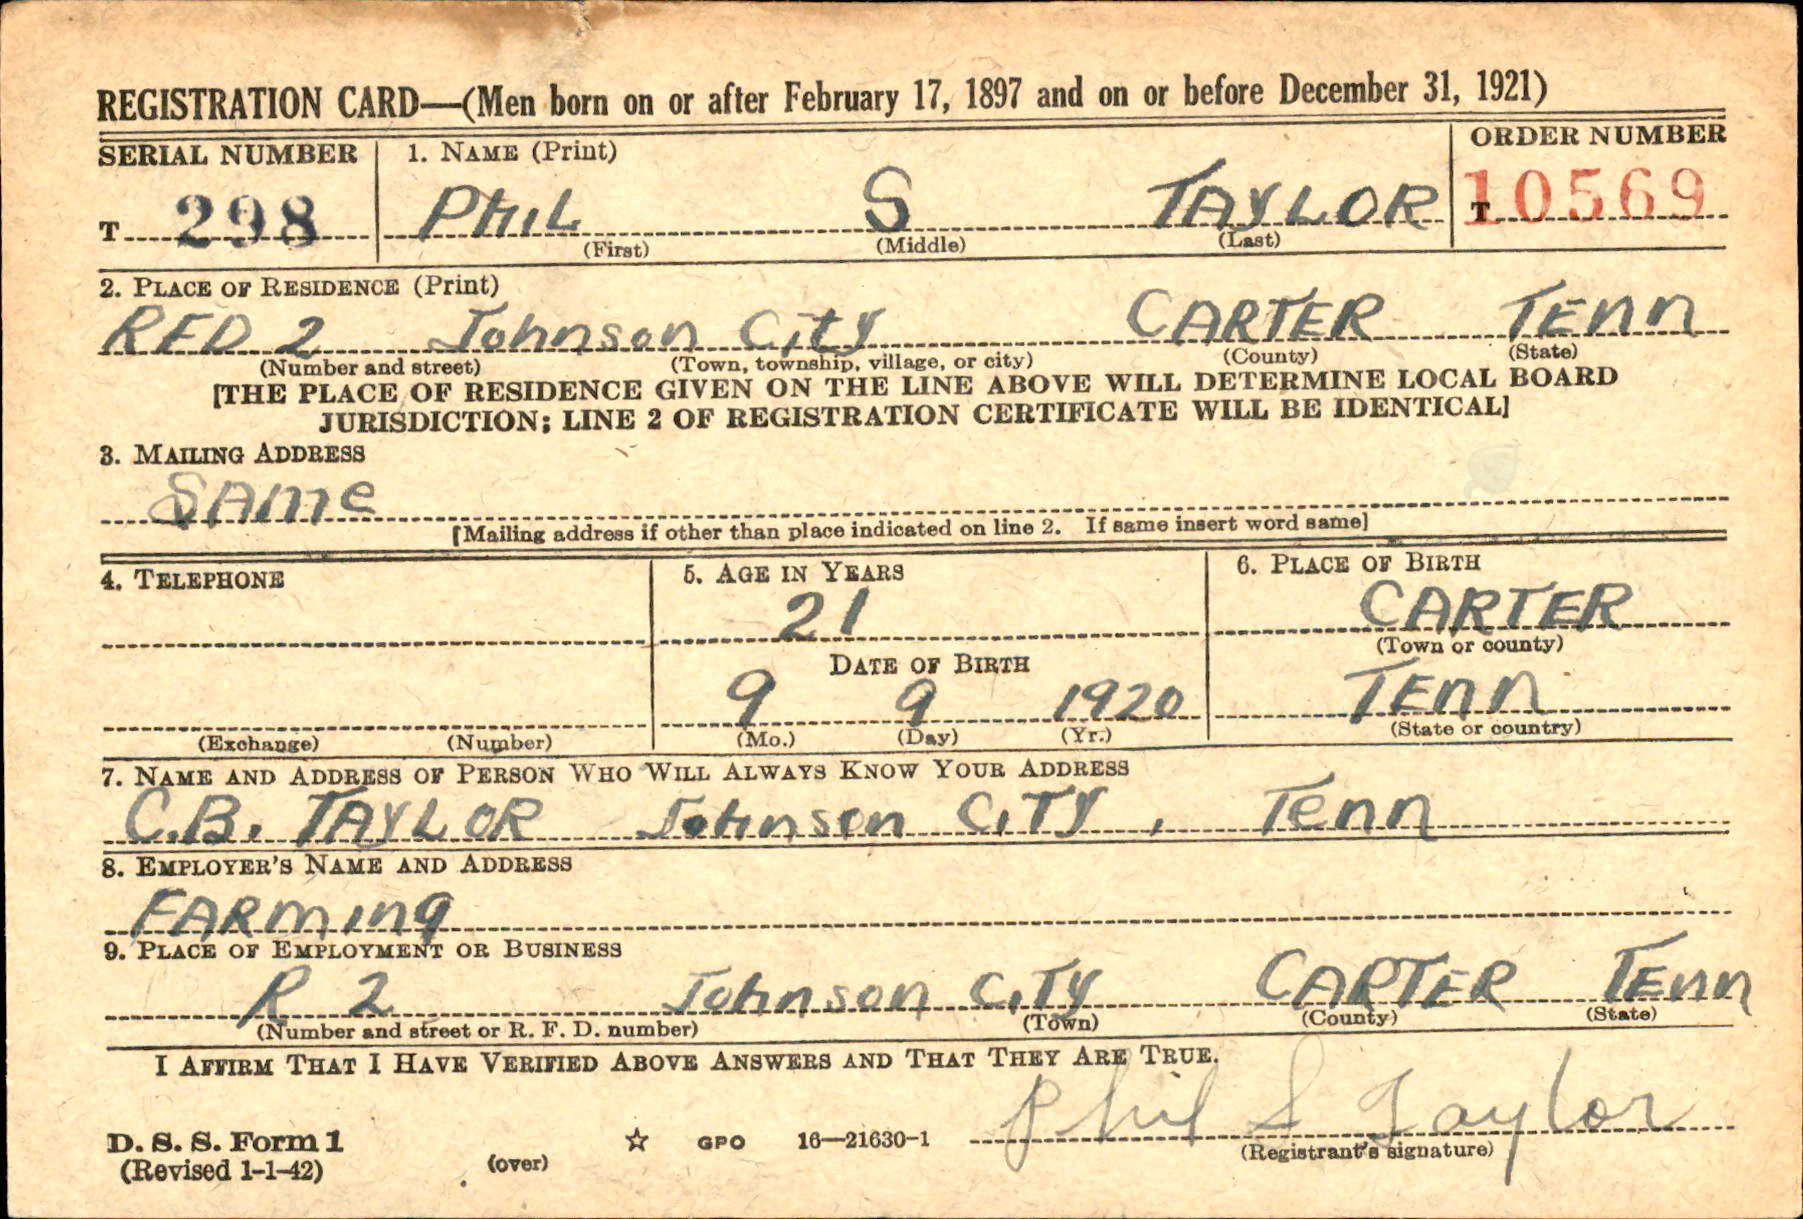 REGISTRATION CARD—(Men born on or after February 17, 1897 and on or before December 31, 1921)
SERIAL NUMBER 1. NAME (Print) ORDER NUMBER
T 298 PHIL S TAYLOR T 10569
(First) (Middle) (Last)
2. PLACE OF RESIDENCE (Print)
RFD 2 Johnson City CARTER TEnn
(Number and street) (Town, township, village, or city) (County) (State)
[THE PLACE OF RESIDENCE GIVEN ON THE LINE ABOVE WILL DETERMINE LOCAL BOARD
JURISDICTION; LINE 2 OF REGISTRATION CERTIFICATE WILL BE IDENTICAL]
3. MAILING ADDRESS
SAme
[Mailing address if other than place indicated on line 2. If same insert word same]
4. TELEPHONE 5. AGE IN YEARS 6. PLACE OF BIRTH
21 CARTER
(Town or county)
DATE OF BIRTH
9 9 1920 TEnn
(Exchange) (Number) (Mo.) (Day) (Yr.) (State or country)
7. NAME AND ADDRESS OF PERSON WHO WILL ALWAYS KNOW YOUR ADDRESS
C.B. TAYLOR Johnson CiTY, Tenn
8. EMPLOYER'S NAME AND ADDRESS
FARming
9. PLACE OF EMPLOYMENT OR BUSINESS
R 2 Johnson CiTY CARTER TEnn
(Number and street or R. F. D. number) (Town) (County) (State)
I AFFIRM THAT I HAVE VERIFIED ABOVE ANSWERS AND THAT THEY ARE TRUE.
Phil S Taylor
D. S. S. Form 1 ☆ GPO 16—21630-1 (Registrant's signature)
(Revised 1-1-42) (over)